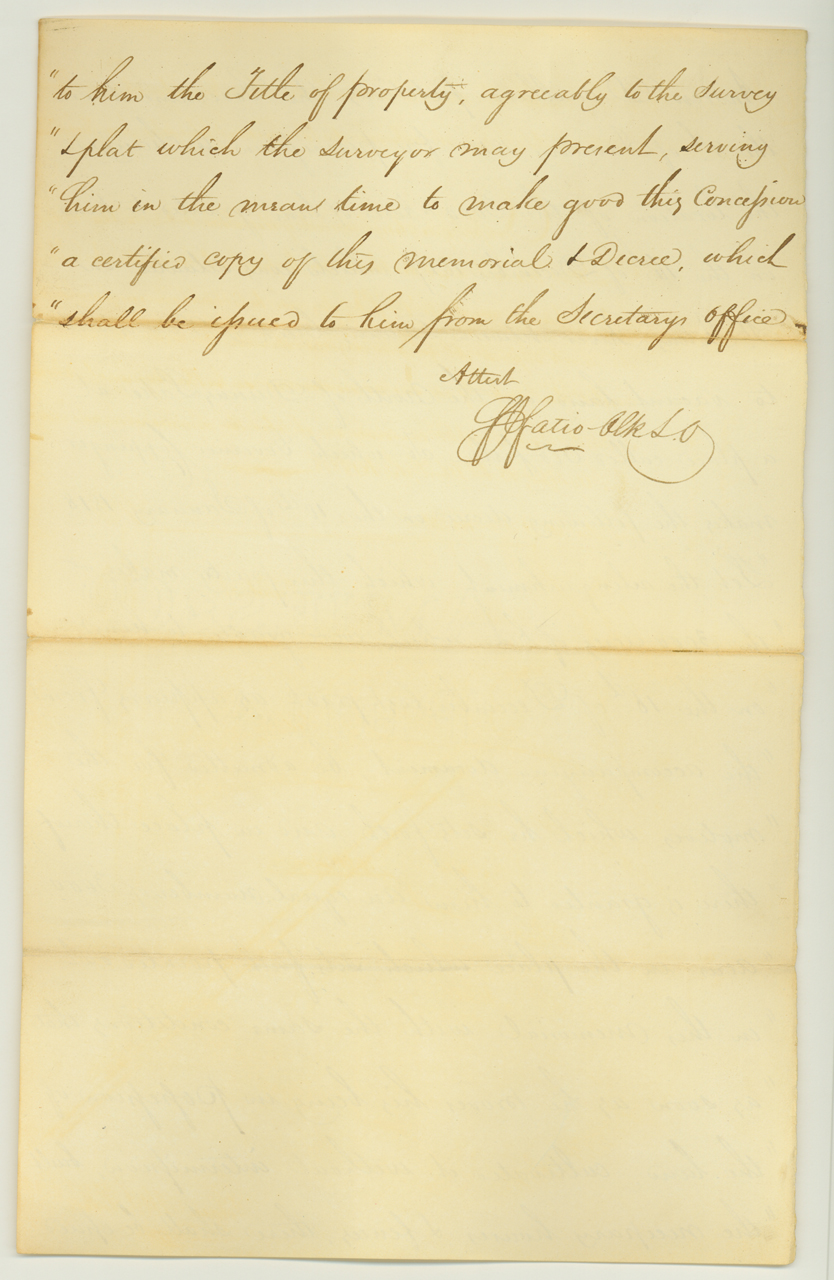 "to him the Title of property, agreeably to the survey
"& plat which the surveyor may present, serving
"him in the mean time to make good this Concession
"a certified copy of this memorial & Decree, which
"shall be issued to him from the Secretarys office
Attest
F J Fatio Clk L.O